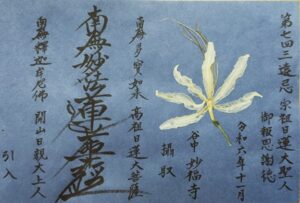 第七四三遠忌 宗祖日蓮大聖人
御報恩謝徳
令和六年十一月
谷中 妙福寺
攝取
南無多宝如来 高祖日蓮大菩薩
南無妙法蓮華経
南無釋迦牟尼佛 開山日親大上人
引入